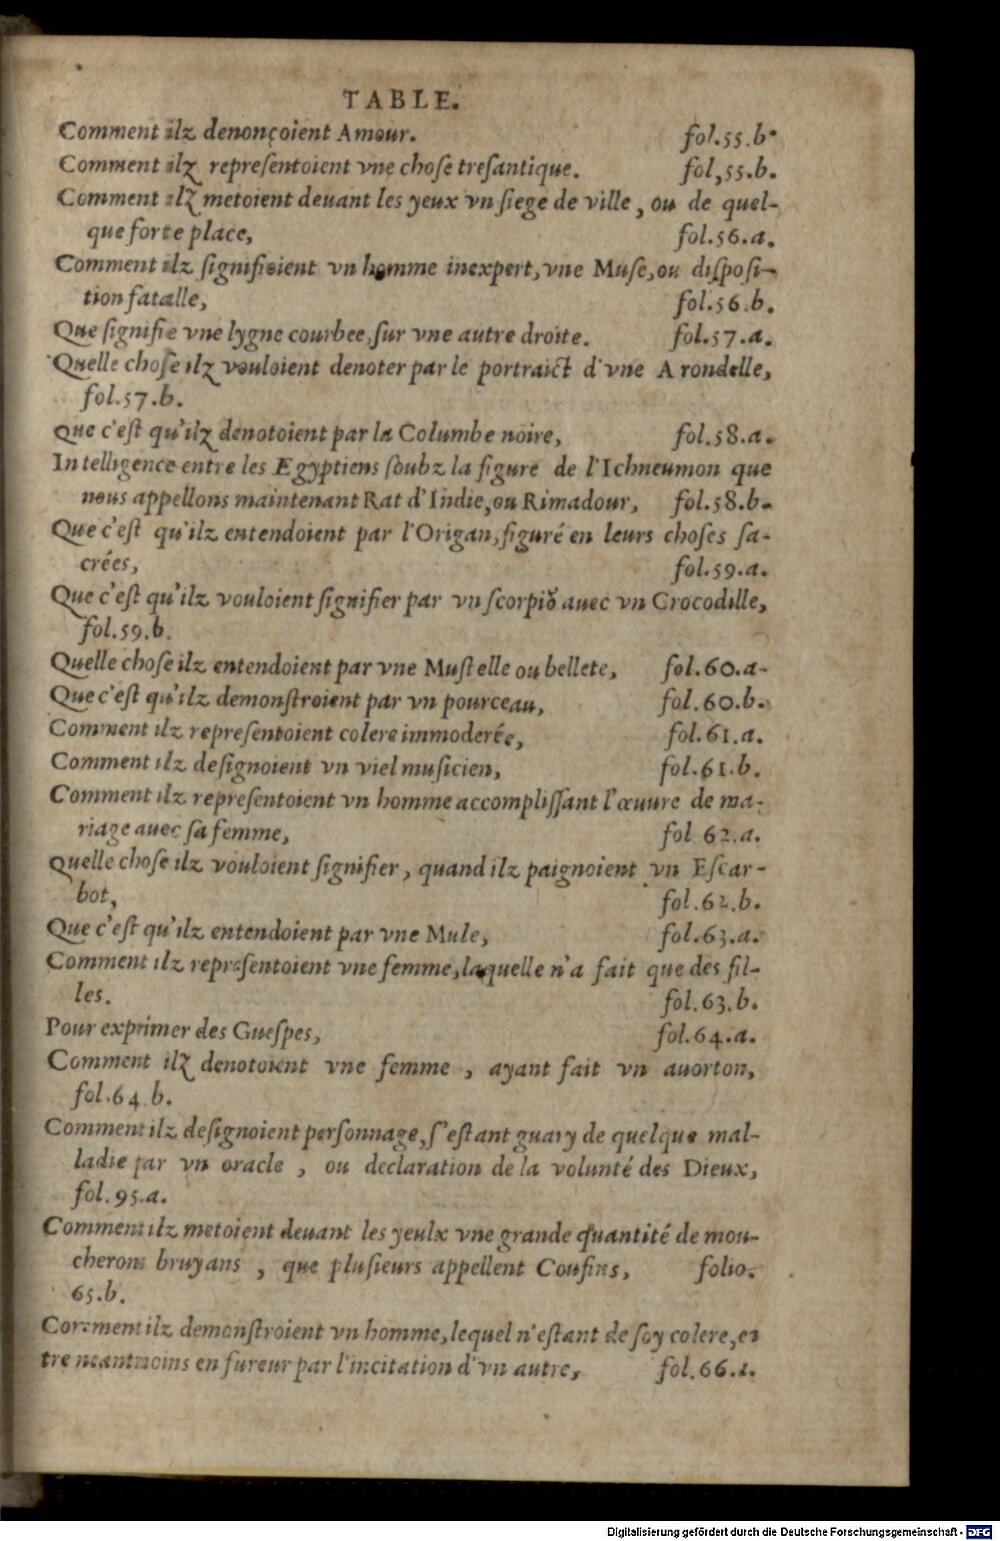 TABLE.
Comment ilz denonçoient Amour. fol.55.b.
Comment ilz repreſentoient vne choſe treſantique. fol,55.b.
Comment ilz metoient deuant les yeux vn ſiege de ville, ou de quel-
que forte place, fol.56.a.
Comment ilz ſignifioient vn homme inexpert, vne Muſe, ou diſpoſi-
tion fatalle, fol.56.b.
Que ſignifie vne lygne courbee, ſur vne autre droite. fol.57.a.
Quelle choſe ilz vouloient denoter par le portraict d'vne Arondelle,
fol.57.b.
Que c'eſt qu'ilz denotoient par la Columbe noire, fol.58.a.
Intelligence entre les Egyptiens ſoubz la figure de l'Ichneumon que
nous appellons maintenant Rat d'Indie, ou Rimadour, fol.58.b.
Que c'eſt qu'ilz entendoient par l'Origan, figuré en leurs choſes ſa-
crées, fol.59.a.
Que c'eſt qu'ilz vouloient ſignifier par vn ſcorpiõ auec vn Crocodille,
fol.59.b.
Quelle choſe ilz entendoient par vne Muſtelle ou bellete, fol.60.a.
Que c'eſt qu'ilz demonſtroient par vn pourceau, fol.60.b.
Comment ilz repreſentoient colere immoderée, fol.61.a.
Comment ilz deſignoient vn viel muſicien, fol.61.b.
Comment ilz repreſentoient vn homme accompliſſant l'œuure de ma-
riage auec ſa femme, fol 62.a.
Quelle choſe ilz vouloient ſignifier, quand ilz paignoient vn Eſcar-
bot, fol.62.b.
Que c'eſt qu'ilz entendoient par vne Mule, fol.63.a.
Comment ilz repreſentoient vne femme, laquelle n'a fait que des fil-
les. fol.63.b.
Pour exprimer des Gueſpes, fol.64.a.
Comment ilz denotoient vne femme, ayant fait vn auorton,
fol.64 b.
Comment ilz deſignoient perſonnage, ſ'eſtant guary de quelque mal-
ladie par vn oracle, ou declaration de la volunté des Dieux,
fol.95.a.
Comment ilz metoient deuant les yeulx vne grande quantité de mou-
cherons bruyans, que pluſieurs appellent Couſins, folio.
65.b.
Comment ilz demonſtroient vn homme, lequel n'eſtant de ſoy colere, eſ
tre neantmoins en fureur par l'incitation d'vn autre, fol.66.a.
Digitalisierung gefördert durch die Deutsche Forschungsgemeinschaft - DFG